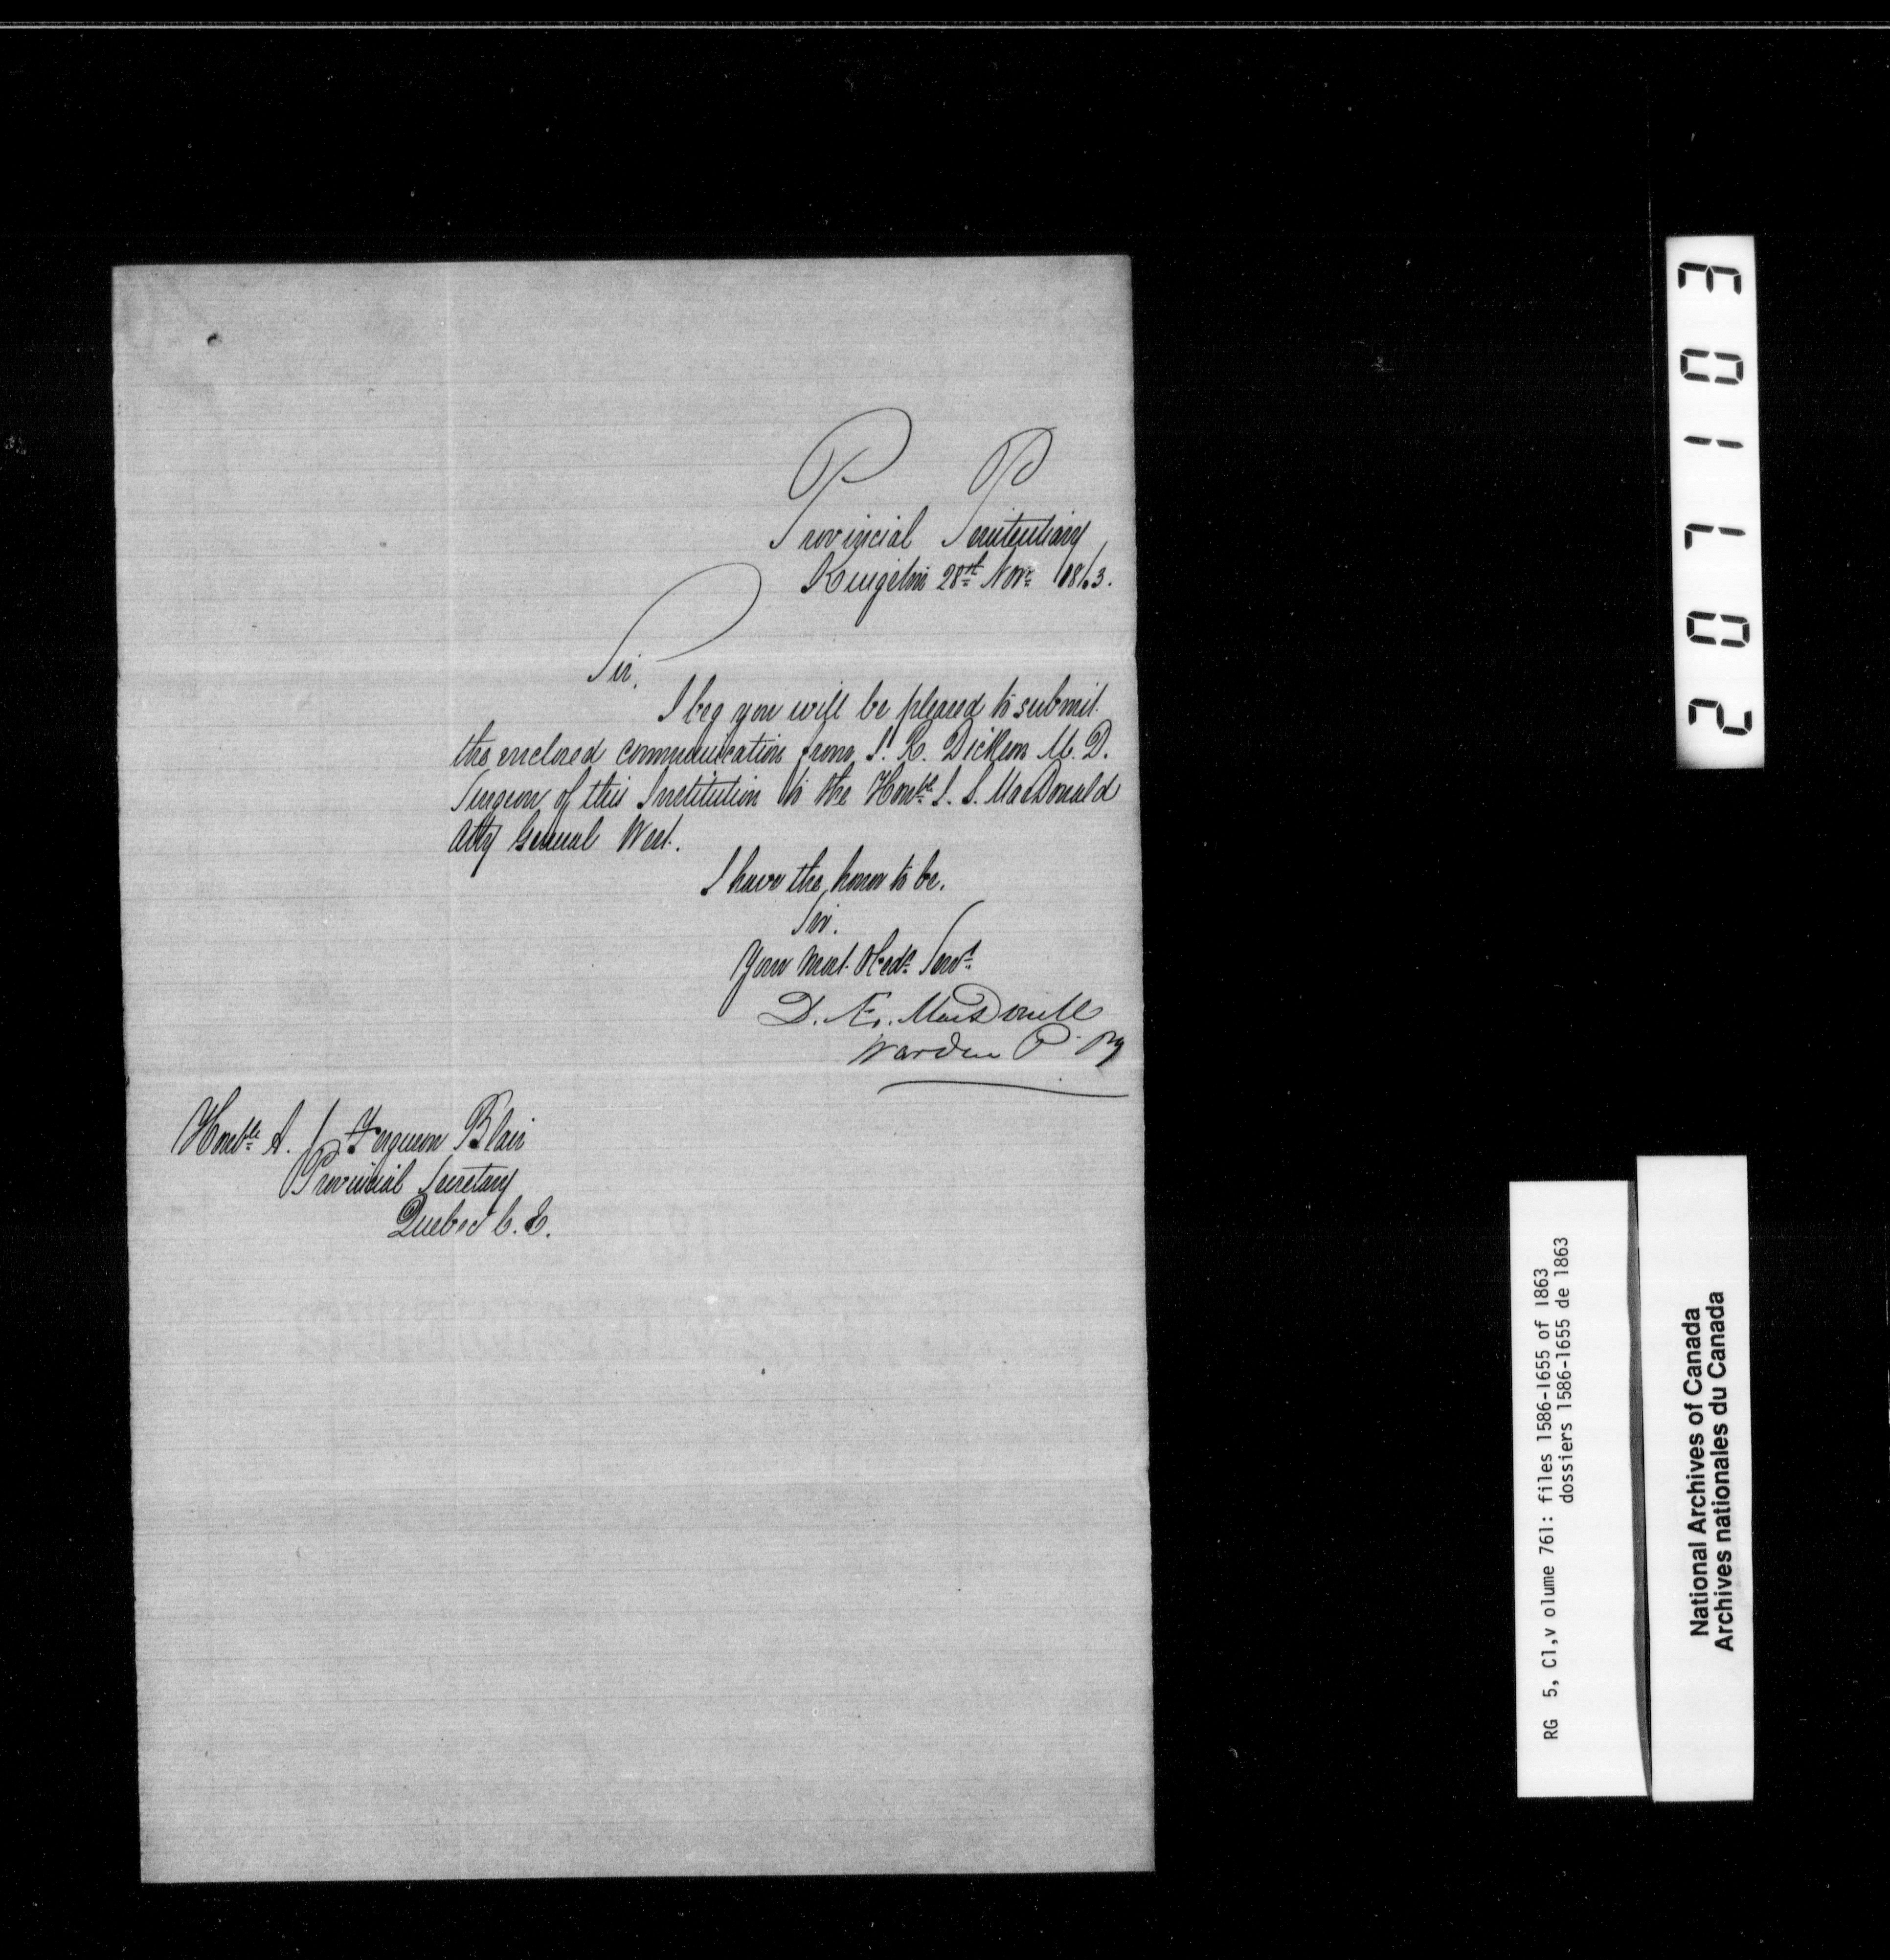 Provincial Penitentiary
Kingston 28th Novr 1863.
Sir,
I beg you will be pleased to submit
the enclosed communication from J. R. Dickson M.D.
Surgeon of this Institution to the Honble J. S. MacDonald
Atty General West.
I have the honor to be,
Sir.
Your Most Obedt Servt
D. Æ. MacDonell
Warden P. Py
Honble A. J. Ferguson Blair
Provincial Secretary
Quebec C.E.
2 0 7 1 0 3
RG 5, C1,v olume 761: files 1586-1655 of 1863
dossiers 1586-1655 de 1863
National Archives of Canada
Archives nationales du Canada